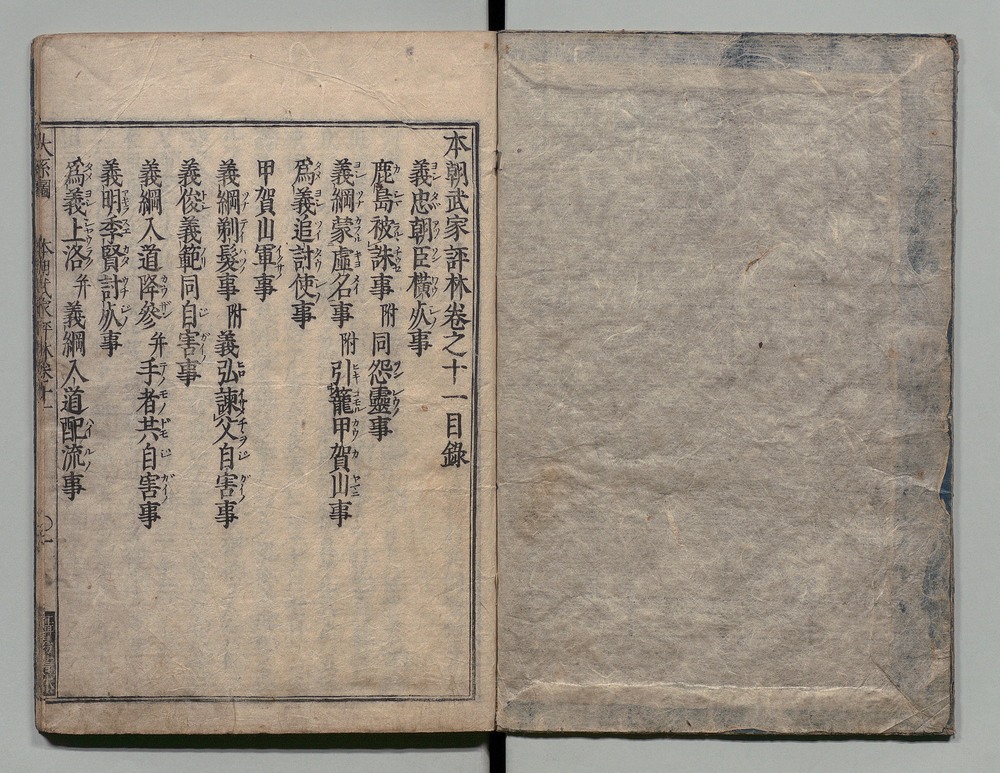 本朝武家評林卷之十一目錄
義忠朝臣橫死事
鹿島被誅事 附 同怨靈事
義綱蒙虛名事 附 引籠甲賀山事
爲義追討使事
甲賀山軍事
義綱剃髮事 附 義弘諫父自害事
義俊義範同自害事
義綱入道降參 并 手者共自害事
義明季賢討死事
爲義上洛 并 義綱入道配流事
大系圖 本朝武家評林卷十一